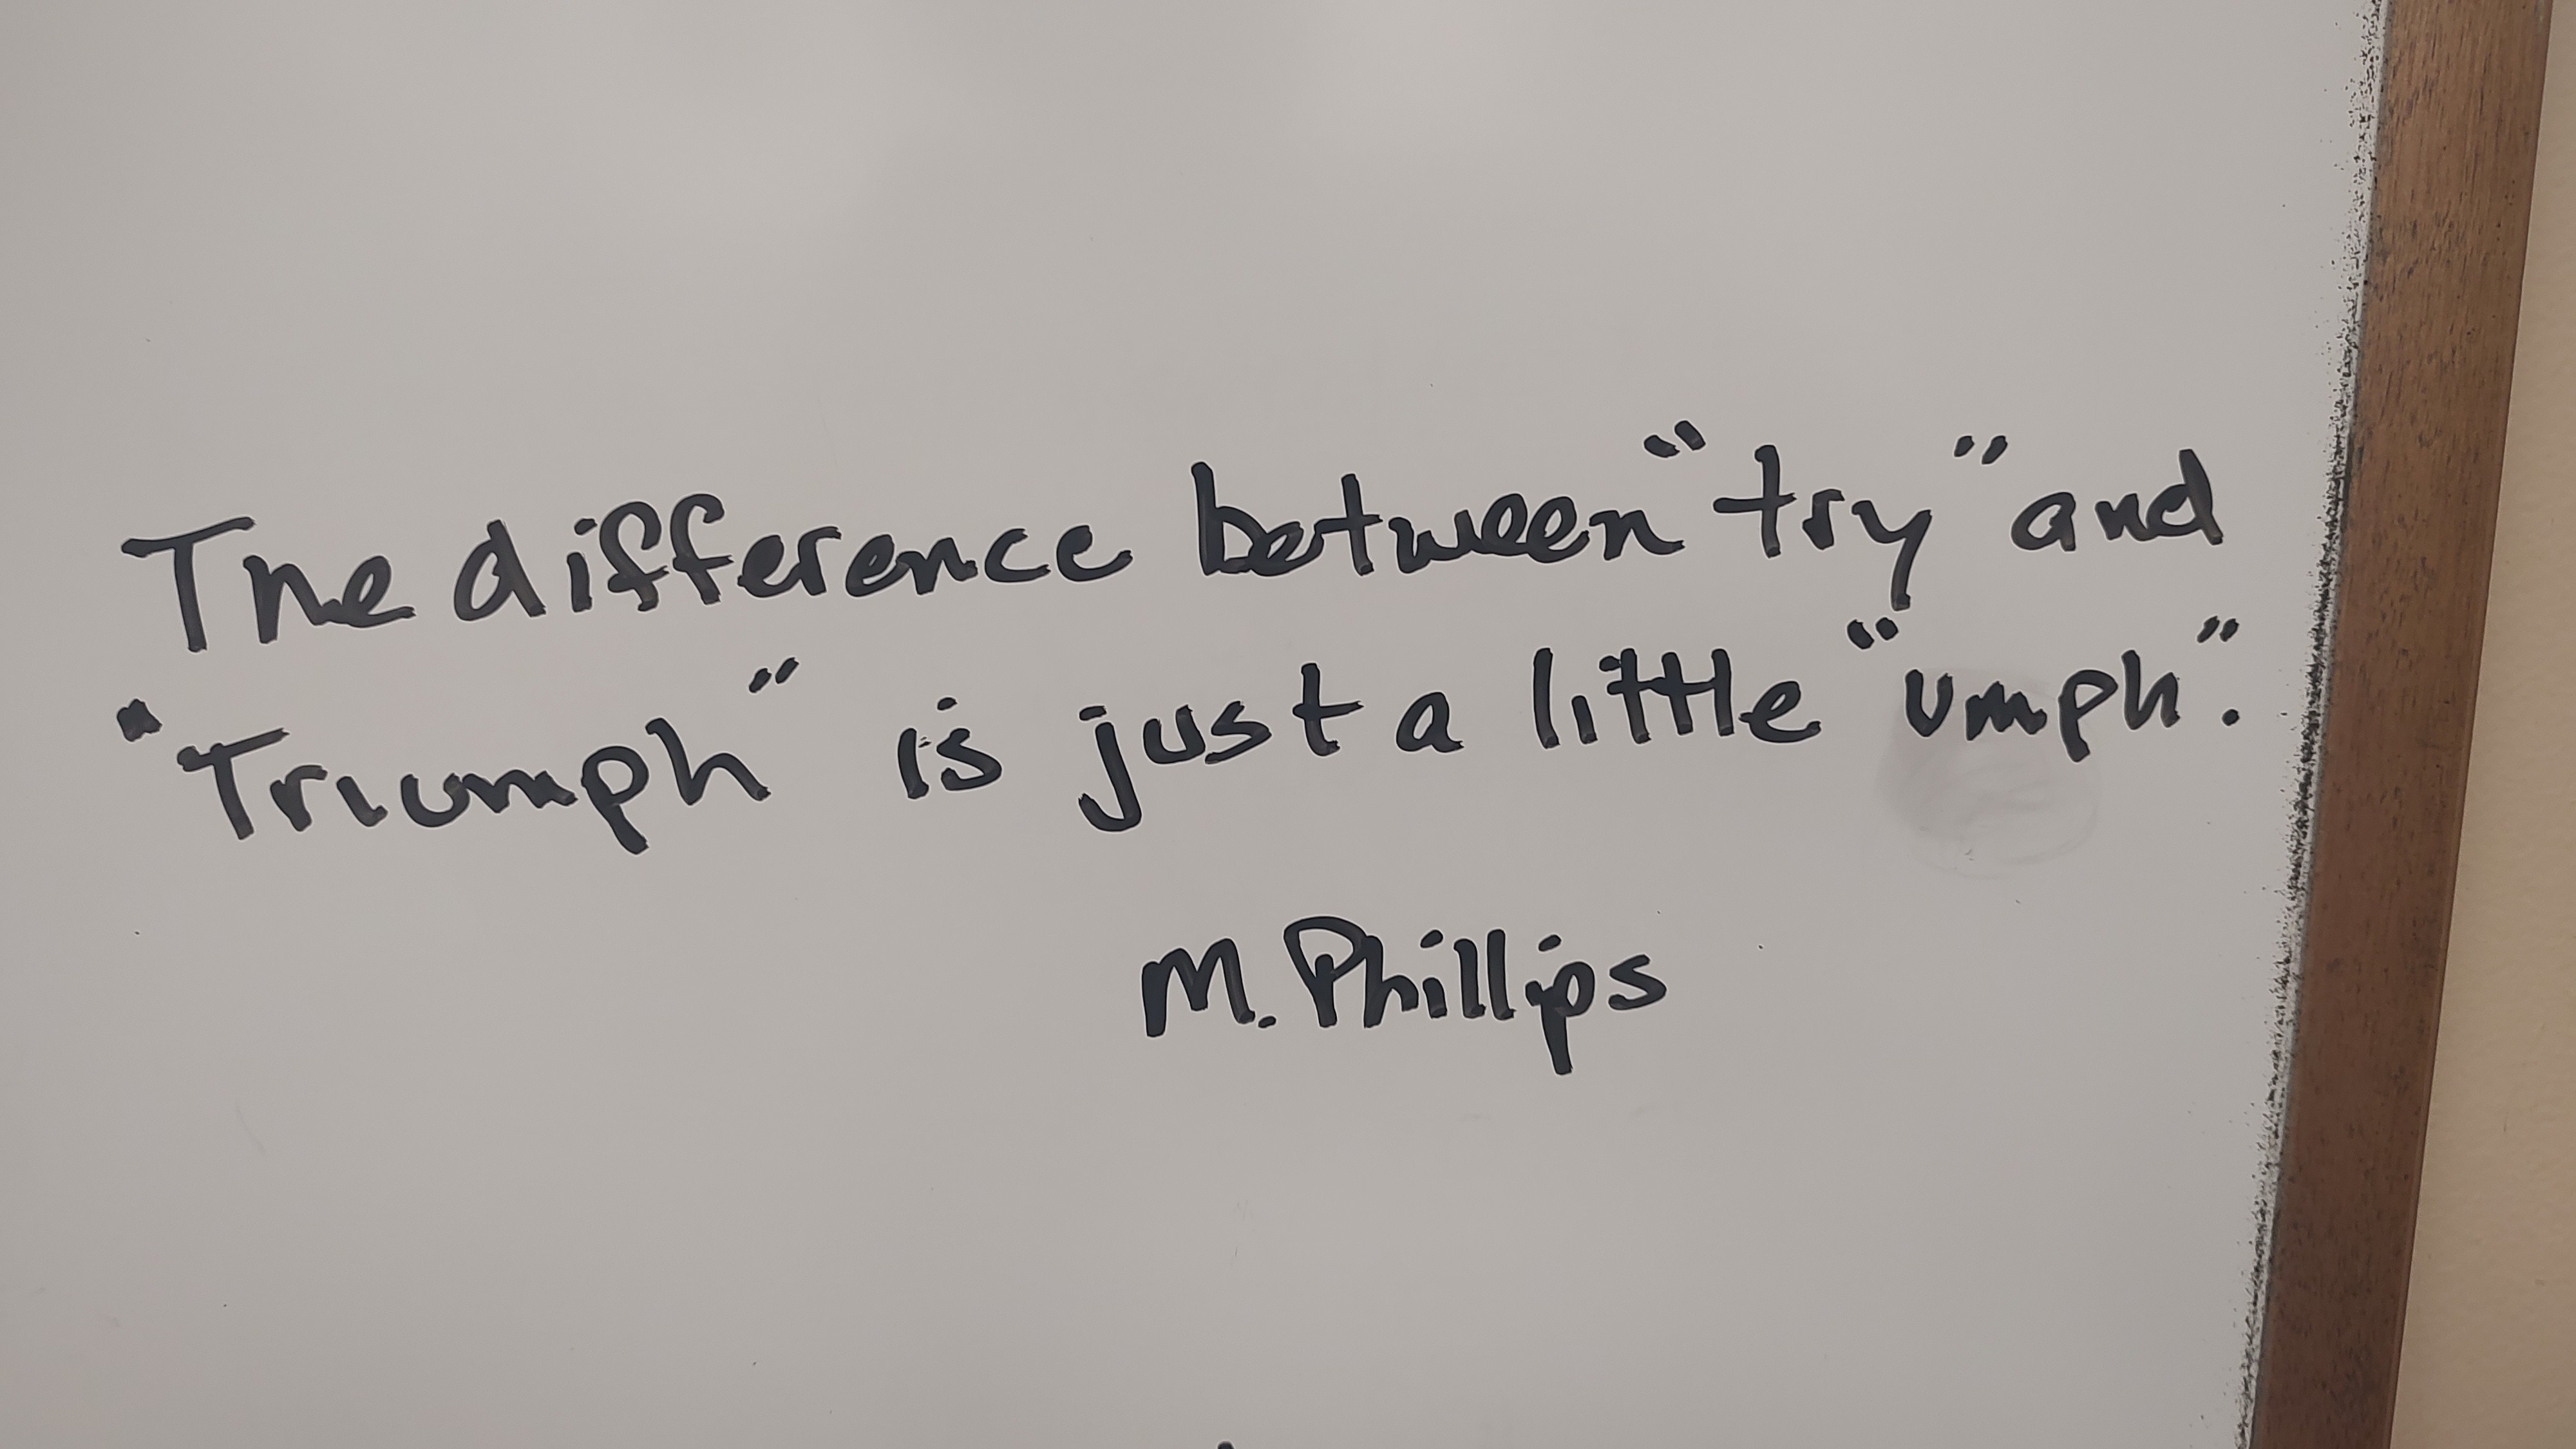 The difference between "try" and
"Triumph" is just a little "umph".
M. Phillips